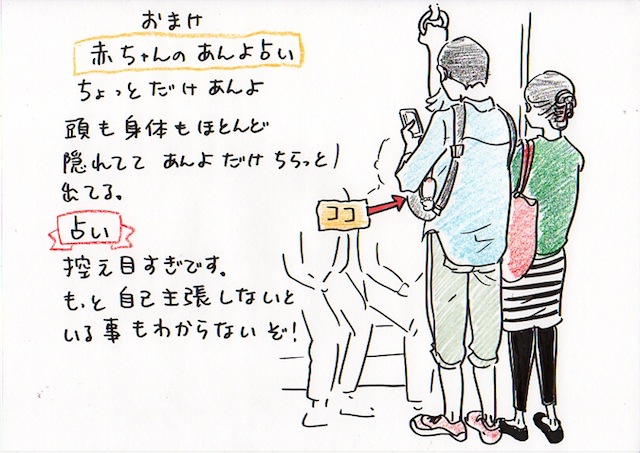 おまけ
赤ちゃんのあんよ占い
ちょっとだけあんよ
頭も身体もほとんど
隠れてて あんよだけちらっと
出てる。
占い
控え目すぎです。
もっと自己主張しないと
いる事もわからないぞ!
ココ